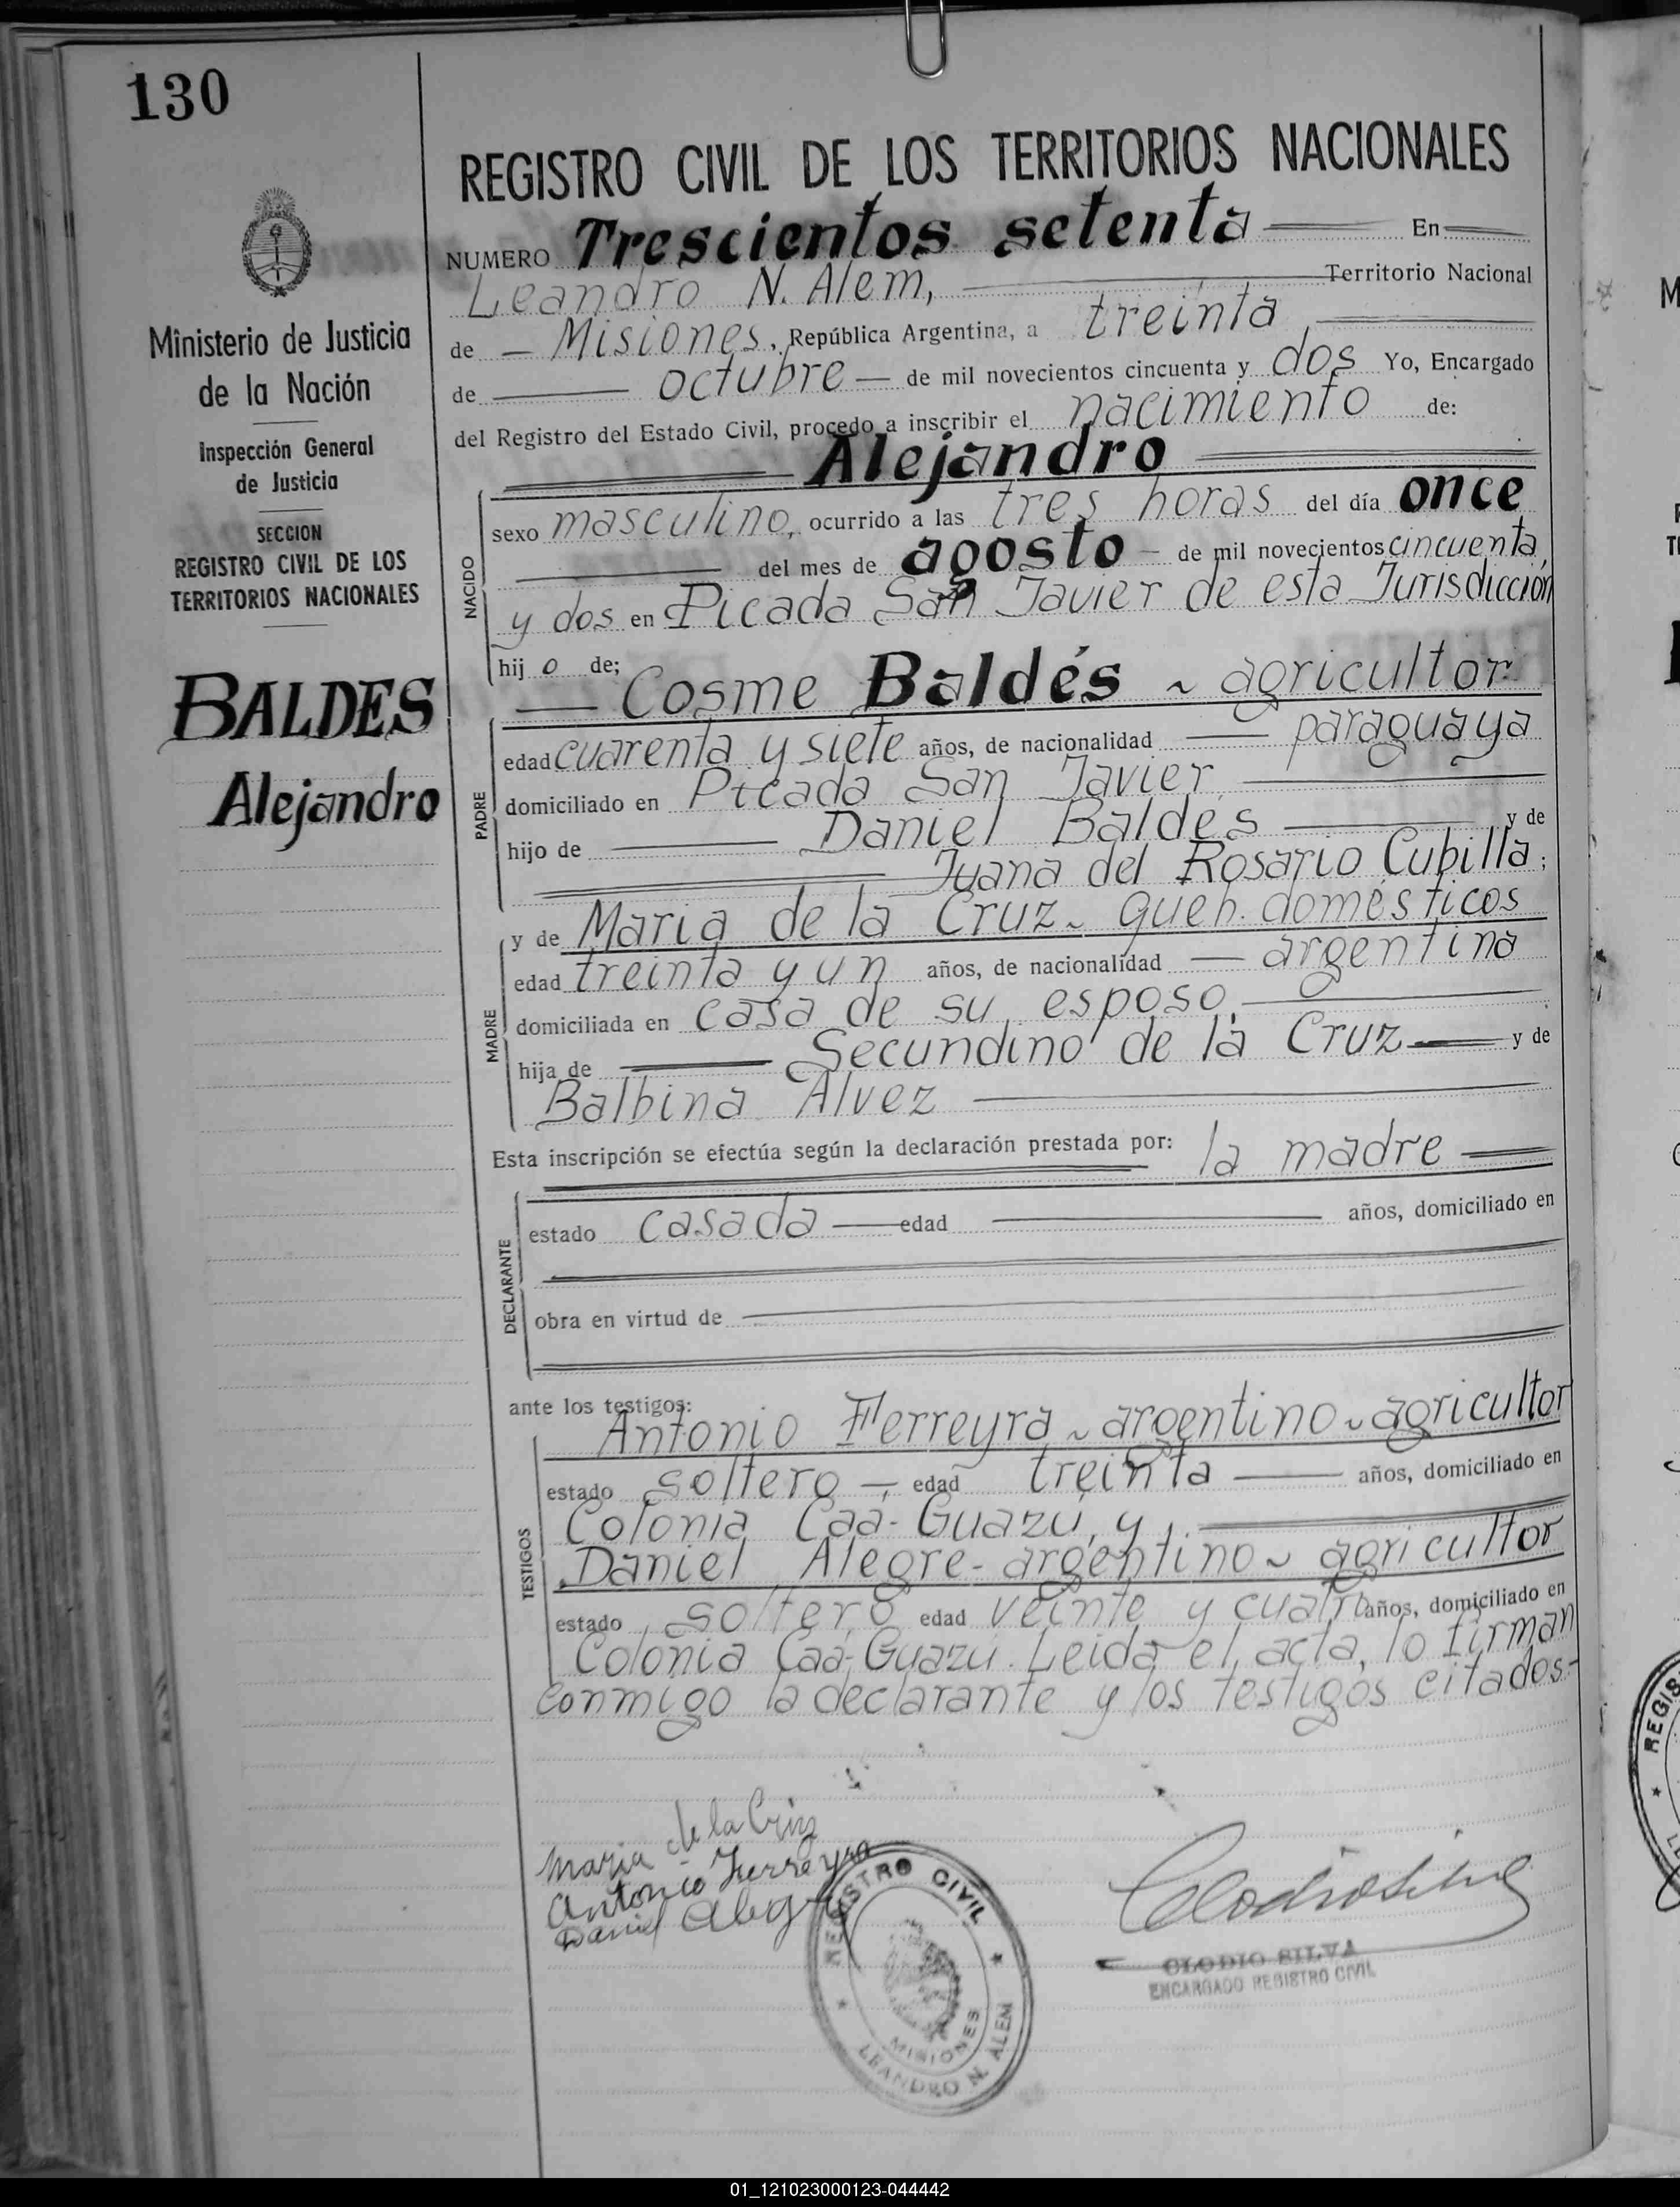 130
REGISTRO CIVIL DE LOS TERRITORIOS NACIONALES
NUMERO Trescientos setenta En
Leandro N. Alem, Territorio Nacional
de Misiones, República Argentina, a treinta,
de octubre de mil novecientos cincuenta y dos Yo, Encargado
del Registro del Estado Civil, procedo a inscribir el nacimiento de:
Alejandro
sexo masculino, ocurrido a las tres horas del día once
del mes de agosto de mil novecientos cincuenta
y dos en Picada San Javier de esta Jurisdicción
hij o de;
Cosme Baldés ~ agricultor
edad cuarenta y siete años, de nacionalidad paraguaya
domiciliado en Picada San Javier
hijo de Daniel Baldés y de
Juana del Rosario Cubilla;
y de Maria de la Cruz ~ queh. domésticos
edad treinta y un años, de nacionalidad argentina
domiciliada en casa de su esposo,
hija de Secundino de la Cruz y de
Balbina Alvez
Esta inscripción se efectúa según la declaración prestada por: la madre
estado casada edad años, domiciliado en
obra en virtud de
ante los testigos:
Antonio Ferreyra ~ argentino ~ agricultor
estado soltero, edad treinta años, domiciliado en
Colonia Caá-Guazú, y
Daniel Alegre - argentino ~ agricultor
estado soltero edad veinte y cuatro años, domiciliado en
Colonia Caá-Guazú. Leida el acta, lo firman
conmigo la declarante y los testigos citados.-
NACIDO
PADRE
MADRE
DECLARANTE
TESTIGOS
Ministerio de Justicia
de la Nación
Inspección General
de Justicia
SECCION
REGISTRO CIVIL DE LOS
TERRITORIOS NACIONALES
BALDES
Alejandro
Maria de la Cruz
Antonio Ferreyra
Daniel Alegre
REGISTRO CIVIL
MISIONES
LEANDRO N. ALEM
Clodio Silva
CLODIO SILVA
ENCARGADO REGISTRO CIVIL
01_121023000123-044442